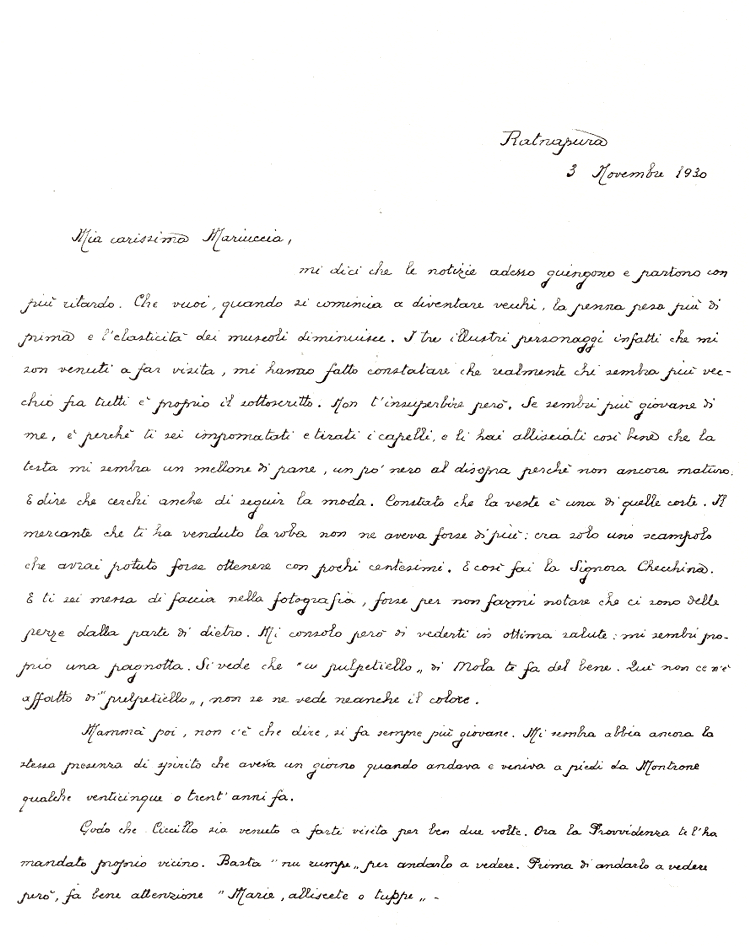 Ratnapura
3 Novembre 1930
Mia carissima Mariuccia,
mi dici che le notizie adesso giungono e partono con
più ritardo. Che vuoi, quando si comincia a diventare vecchi, la penna pesa più di
prima e l'elasticità dei muscoli diminuisce. I tre illustri personaggi infatti che mi
son venuti a far visita, mi hanno fatto constatare che realmente chi sembra più vec-
chio fra tutti è proprio il sottoscritto. Non t'insuperbire però. Se sembri più giovane di
me, è perchè ti sei impomatati e tirati i capelli, e li hai allisciati così bene che la
testa mi sembra un mellone di pane, un po' nero al disopra perchè non ancora maturo.
E dire che cerchi anche di seguir la moda. Constato che la veste è una di quelle corte. Il
mercante che ti ha venduto la roba non ne aveva forse di più: era solo uno scampolo
che avrai potuto forse ottenere con pochi centesimi. E così fai la Signora Checchina.
E ti sei messa di faccia nella fotografia, forse per non farmi notare che ci sono delle
pezze dalla parte di dietro. Mi consolo però di vederti in ottima salute: mi sembri pro-
prio una pagnotta. Si vede che "u pulpetiello" di Mola te fa del bene. Quì non ce n'è
affatto di "pulpetiello", non se ne vede neanche il colore.
Mammà poi, non c'è che dire, si fa sempre più giovane. Mi sembra abbia ancora la
stessa presenza di spirito che aveva un giorno quando andava e veniva a piedi da Montrone
qualche venticinque o trent'anni fa.
Godo che Ciccillo sia venuto a farti visita per ben due volte. Ora la Provvidenza te l'ha
mandato proprio vicino. Basta "nu zumpe" per andarlo a vedere. Prima di andarlo a vedere
però, fa bene attenzione "Marie, alliscete o tuppe" -